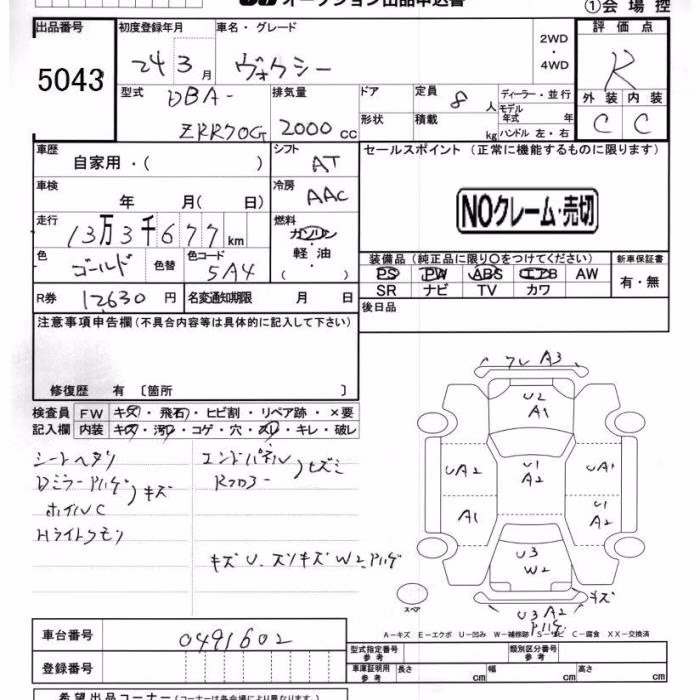 オークション出品申込書
①会場控
出品番号
5043
初度登録年月
24 3月
車名・グレード
ヴォクシー
2WD
・
4WD
評価点
R
外装 内装
C C
型式
DBA-
ZRR70G
排気量
2000 cc
ドア
形状
定員
8 人
積載
kg
ディーラー・並行
モデル年式 年
ハンドル 左・右
車歴
自家用・( )
シフト
AT
車検
年 月( 日)
冷房
AAC
走行
13万3千677km
燃料
ガソリン
・
軽油
( )
色
ゴールド
色替
色コード
5A4
R券
12630円
名変通知期限 月 日
セールスポイント(正常に機能するものに限ります)
NOクレーム・売切
装備品(純正品に限り○をつけてください)
PS PW ABS エアB AW
SR ナビ TV カワ
新車保証書
有・無
後日品
注意事項申告欄(不具合内容等は具体的に記入して下さい)
修復歴 有〔箇所 〕
検査員
記入欄
FW キズ・飛石・ヒビ割・リペア跡・×要
内装 キズ・汚レ・コゲ・穴・スレ・キレ・破レ
シートヘタリ
Dミラーハゲ
キズ
ホイルC
Hライトクモリ
エンドパネル
Rフロアー
キズU.ズリキズW2.ハゲ
ワレ A3
U2
A1
UA2
U1
A2
UA1
A1
U1
A2
U3
W2
キズ
U3 A2
ハゲ
スペア
A-キズ E-エクボ U-凹み W-補修跡 S-サビ C-腐食 XX-交換済
車台番号
0491602
登録番号
型式指定番号
参考
類別区分番号
参考
車庫証明用
参考
長さ cm 幅 cm 高さ cm
希望出品コーナー(コーナーは各会場により異なります。)